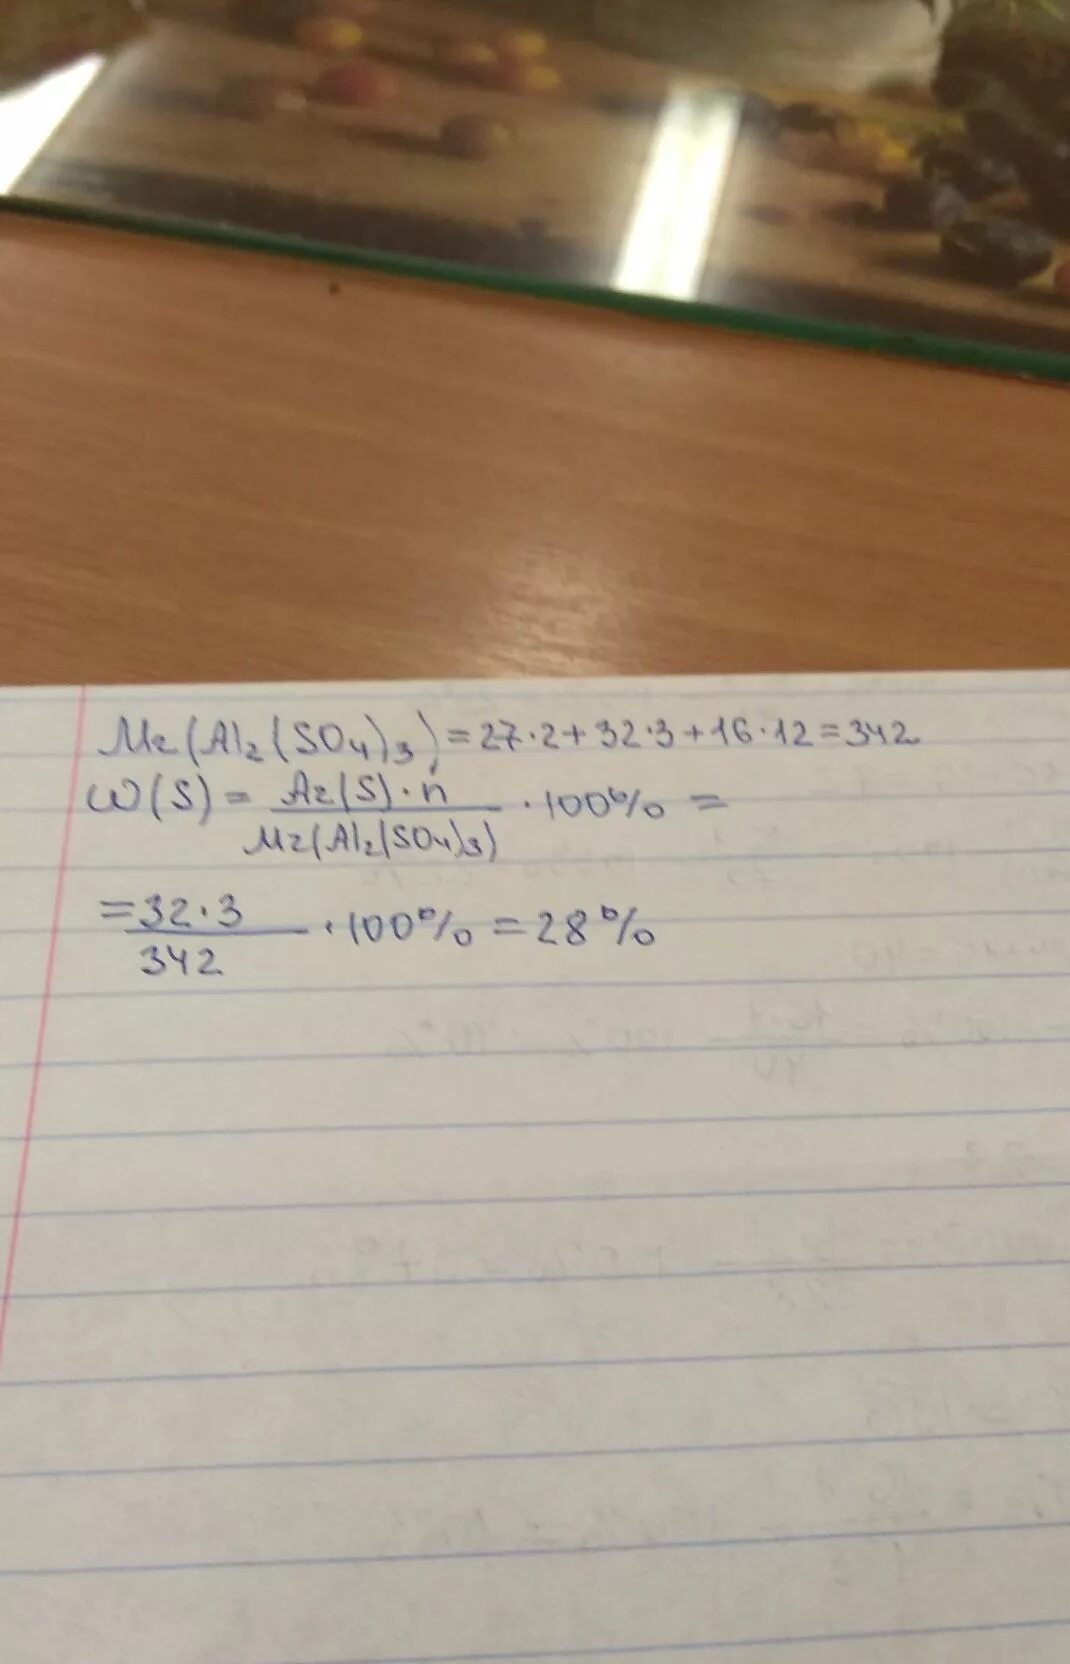 Mr(Al₂(SO₄)₃) = 27·2+32·3+16·12=342
W(S) = Ar(S)·n / Mr(Al₂(SO₄)₃) · 100% =
= 32·3 / 342 · 100% = 28%